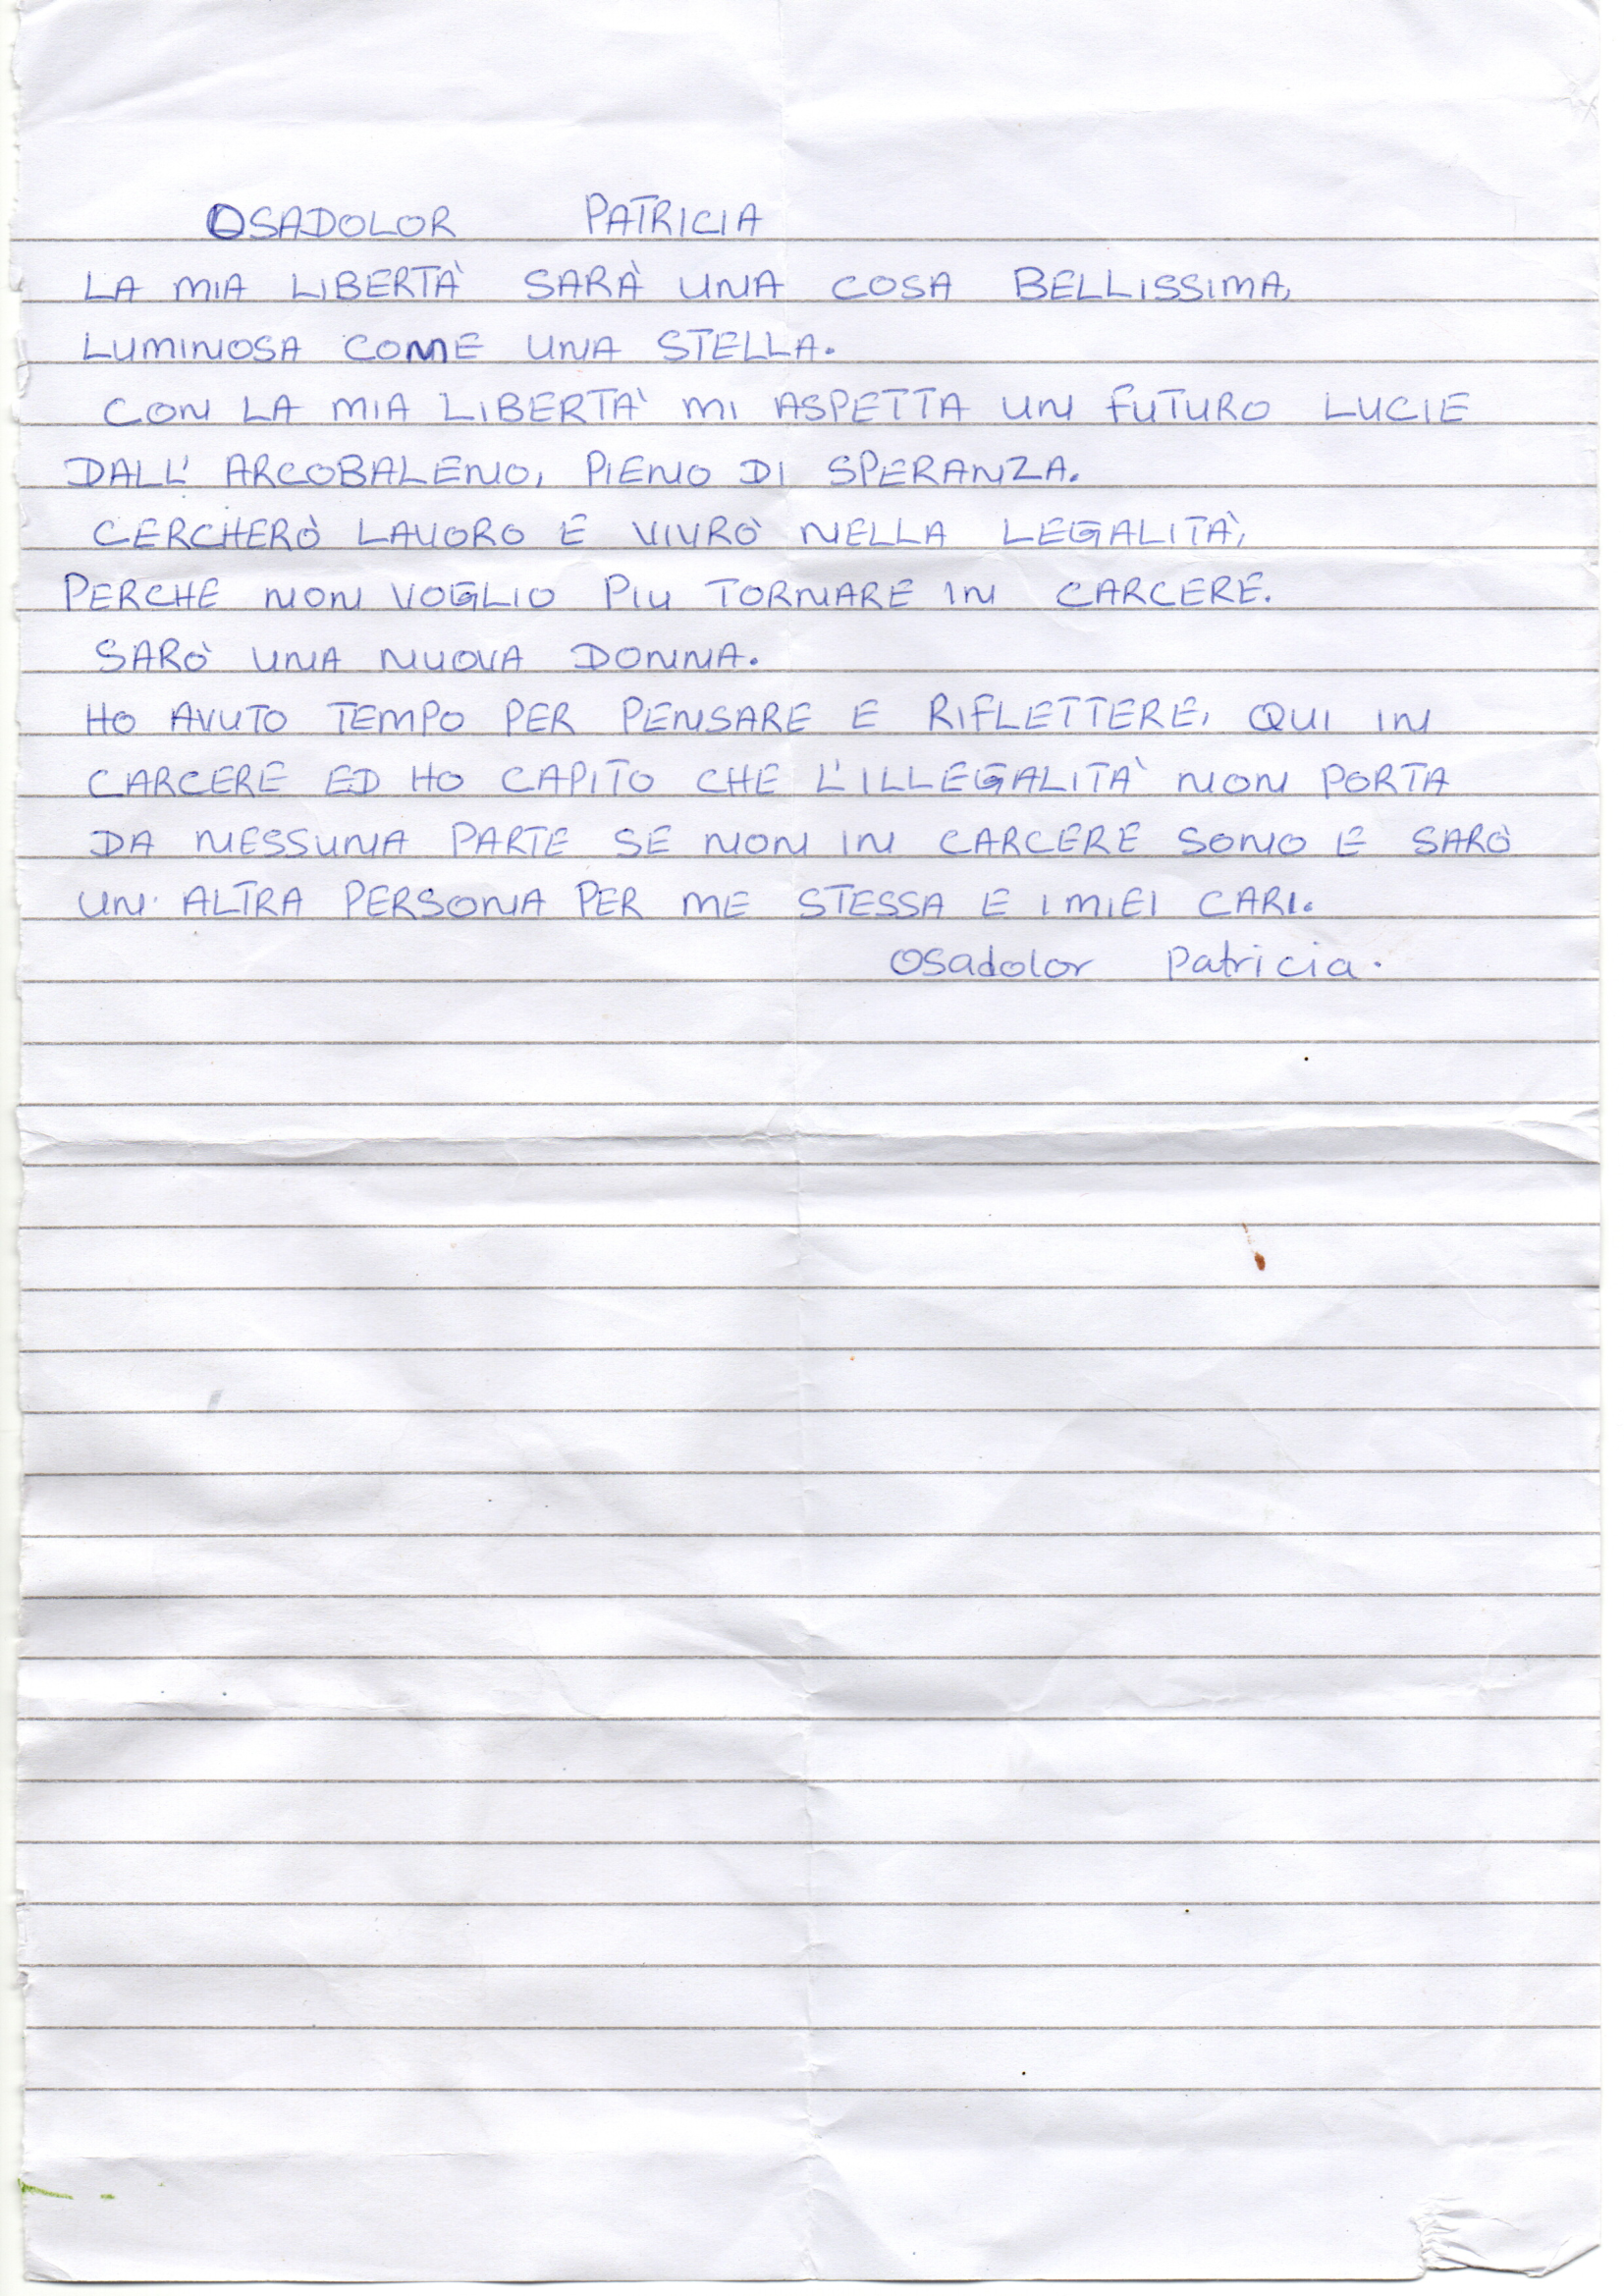 OSADOLOR PATRICIA
LA MIA LIBERTÀ SARÀ UNA COSA BELLISSIMA,
LUMINOSA COME UNA STELLA.
CON LA MIA LIBERTA' MI ASPETTA UN FUTURO LUCIE
DALL' ARCOBALENO, PIENO DI SPERANZA.
CERCHERÒ LAVORO E VIVRÒ NELLA LEGALITÀ,
PERCHE NON VOGLIO PIU TORNARE IN CARCERE.
SARÒ UNA NUOVA DONNA.
HO AVUTO TEMPO PER PENSARE E RIFLETTERE, QUI IN
CARCERE ED HO CAPITO CHE L'ILLEGALITA' NON PORTA
DA NESSUNA PARTE SE NON IN CARCERE SONO E SARÒ
UN' ALTRA PERSONA PER ME STESSA E I MIEI CARI.
Osadolor Patricia.